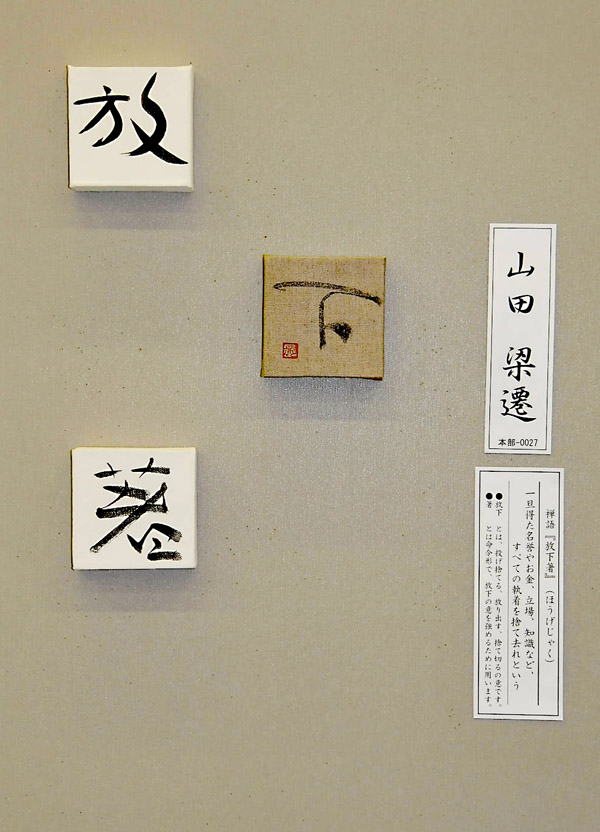 放
下
著
山田 梁遷
本部-0027
禅語『放下著』(ほうげじゃく)
一旦得た名誉やお金、立場、知識など、
すべての執着を捨て去れという
●放下 とは、投げ捨てる、放り出す、捨て切るの意です。
●著 とは命令形で、放下の意を強めるために用います。